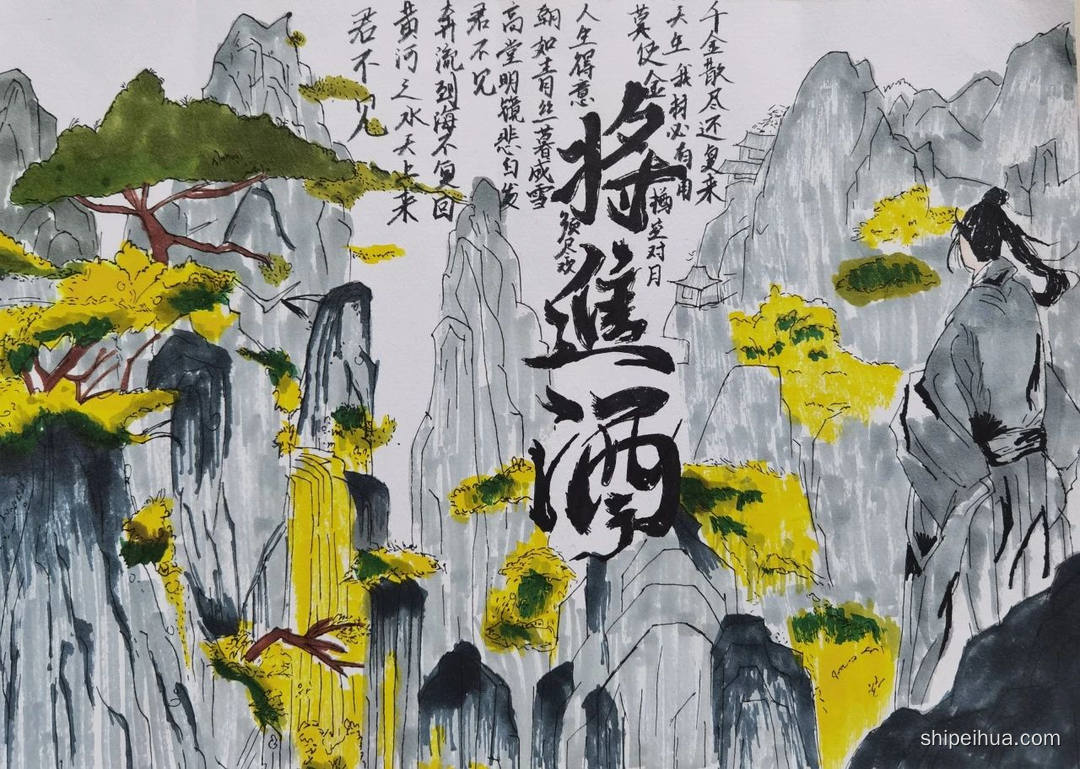 将進酒
君不见
黄河之水天上来
奔流到海不复回
君不见
高堂明镜悲白发
朝如青丝暮成雪
人生得意
须尽欢
莫使金
樽空对月
天生我材必有用
千金散尽还复来
shipeihua.com